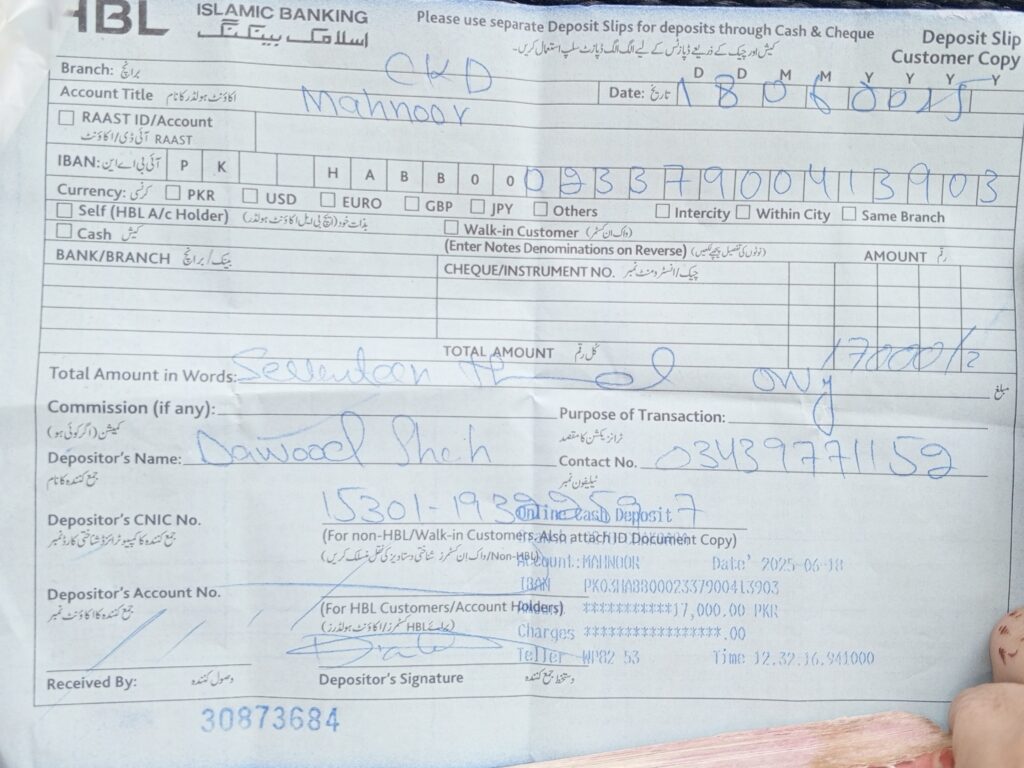 HBL ISLAMIC BANKING
اسلامک بینکنگ
Please use separate Deposit Slips for deposits through Cash & Cheque
کیش اور چیک کے ذریعے ڈپازٹس کے لیے الگ الگ ڈپازٹ سلپ استعمال کریں۔
Deposit Slip
Customer Copy
Branch: برانچ: CKD
D D M M Y Y Y Y
Account Title اکاؤنٹ ہولڈر کا نام Mahnoor
Date: تاریخ: 18062025
RAAST ID/Account
RAAST آئی ڈی/اکاؤنٹ
IBAN: آئی بی اے این: P K H A B B 0 0 0 2 3 3 7 9 0 0 4 1 3 9 0 3
Currency: کرنسی: PKR USD EURO GBP JPY Others Intercity Within City Same Branch
Self (HBL A/c Holder) بذات خود (ایچ بی ایل اکاؤنٹ ہولڈر) Walk-in Customer (واک ان کسٹمر)
Cash کیش (Enter Notes Denominations on Reverse) (نوٹوں کی تفصیل پیچھے لکھیں) AMOUNT رقم
BANK/BRANCH بینک/برانچ CHEQUE/INSTRUMENT NO. چیک/انسٹرومنٹ نمبر
TOTAL AMOUNT کل رقم 17000/=
Total Amount in Words: Seventeen Only مبلغ
Commission (if any): Purpose of Transaction:
کمیشن (اگر کوئی ہو) ٹرانزیکشن کا مقصد
Depositor's Name: Dawood Shah Contact No. 03439771152
جمع کنندہ کا نام ٹیلیفون نمبر
Depositor's CNIC No. 15301-
جمع کنندہ کا کمپیوٹرائزڈ شناختی کارڈ نمبر
Online Cash Deposit
(For non-HBL/Walk-in Customers, Also attach ID Document Copy)
Account: MAHNOOR Date' 2025-06-18
IBAN PK03HABB0002337900413903
Depositor's Account No.
جمع کنندہ کا اکاؤنٹ نمبر
(For HBL Customers/Account Holders) ***********17,000.00 PKR
Charges *****************.00
Teller WP82 53 Time 12.32.16.941000
Received By: وصول کنندہ Depositor's Signature دستخط جمع کنندہ
30873684